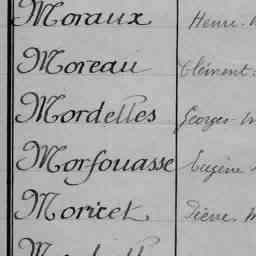 Moraux Henri
Moreau Clément
Mordelles Georges
Morfouasse Eugène
Moricet Pierre